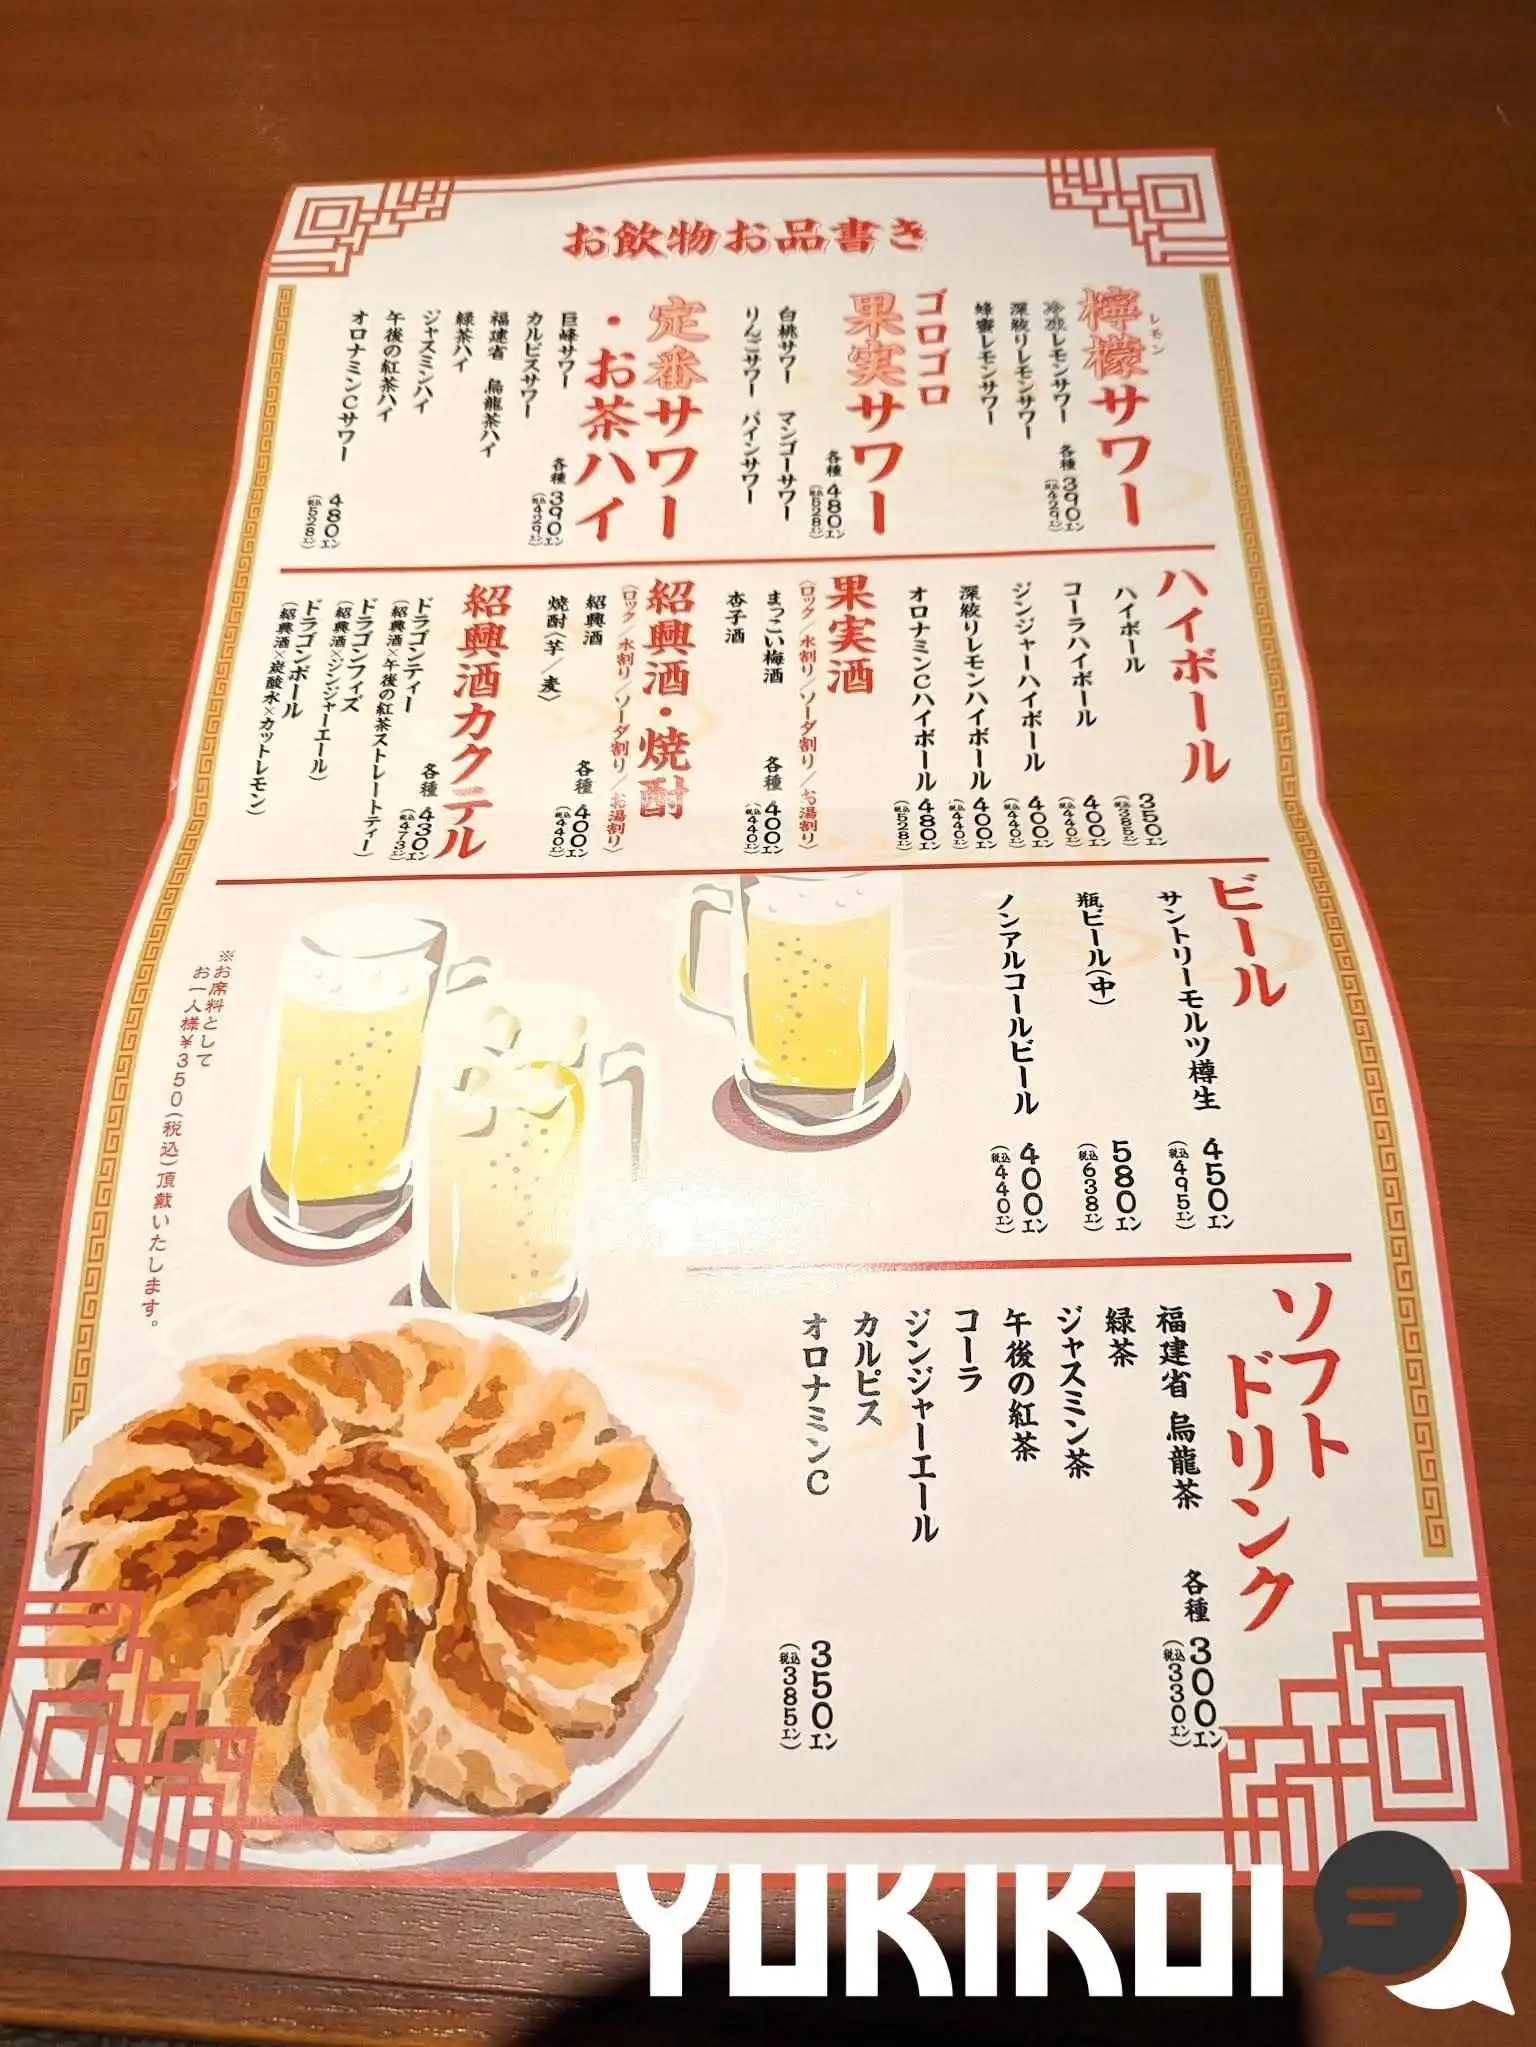 お飲物お品書き
檸檬サワー
レモン
冷凍レモンサワー
深絞りレモンサワー
蜂蜜レモンサワー
各種 390エン
(税込429エン)
ゴロゴロ
果実サワー
白桃サワー マンゴーサワー
りんごサワー パインサワー
各種 480エン
(税込528エン)
定番サワー
・お茶ハイ
巨峰サワー
カルピスサワー
福建省 烏龍茶ハイ
緑茶ハイ
ジャスミンハイ
午後の紅茶ハイ
各種 390エン
(税込429エン)
オロナミンCサワー
480エン
(税込528エン)
ハイボール
ハイボール 350エン
(税込385エン)
コーラハイボール 400エン
(税込440エン)
ジンジャーハイボール 400エン
(税込440エン)
深絞りレモンハイボール 400エン
(税込440エン)
オロナミンCハイボール 480エン
(税込528エン)
果実酒
(ロック/水割り/ソーダ割り/お湯割り)
まっこい梅酒
杏子酒
各種 400エン
(税込440エン)
紹興酒・焼酎
(ロック/水割り/ソーダ割り/お湯割り)
紹興酒
焼酎(芋/麦)
各種 400エン
(税込440エン)
紹興酒カクテル
ドラゴンティー
(紹興酒×午後の紅茶ストレートティー)
ドラゴンフィズ
(紹興酒×ジンジャーエール)
ドラゴンボール
(紹興酒×炭酸水×カットレモン)
各種 430エン
(税込473エン)
ビール
サントリーモルツ樽生 450エン
(税込495エン)
瓶ビール(中) 580エン
(税込638エン)
ノンアルコールビール 400エン
(税込440エン)
※お席料として
お一人様¥350(税込)頂戴いたします。
ソフト
ドリンク
福建省 烏龍茶
緑茶
ジャスミン茶
午後の紅茶
コーラ
ジンジャーエール
カルピス
各種 300エン
(税込330エン)
オロナミンC
350エン
(税込385エン)
YUKIKOI